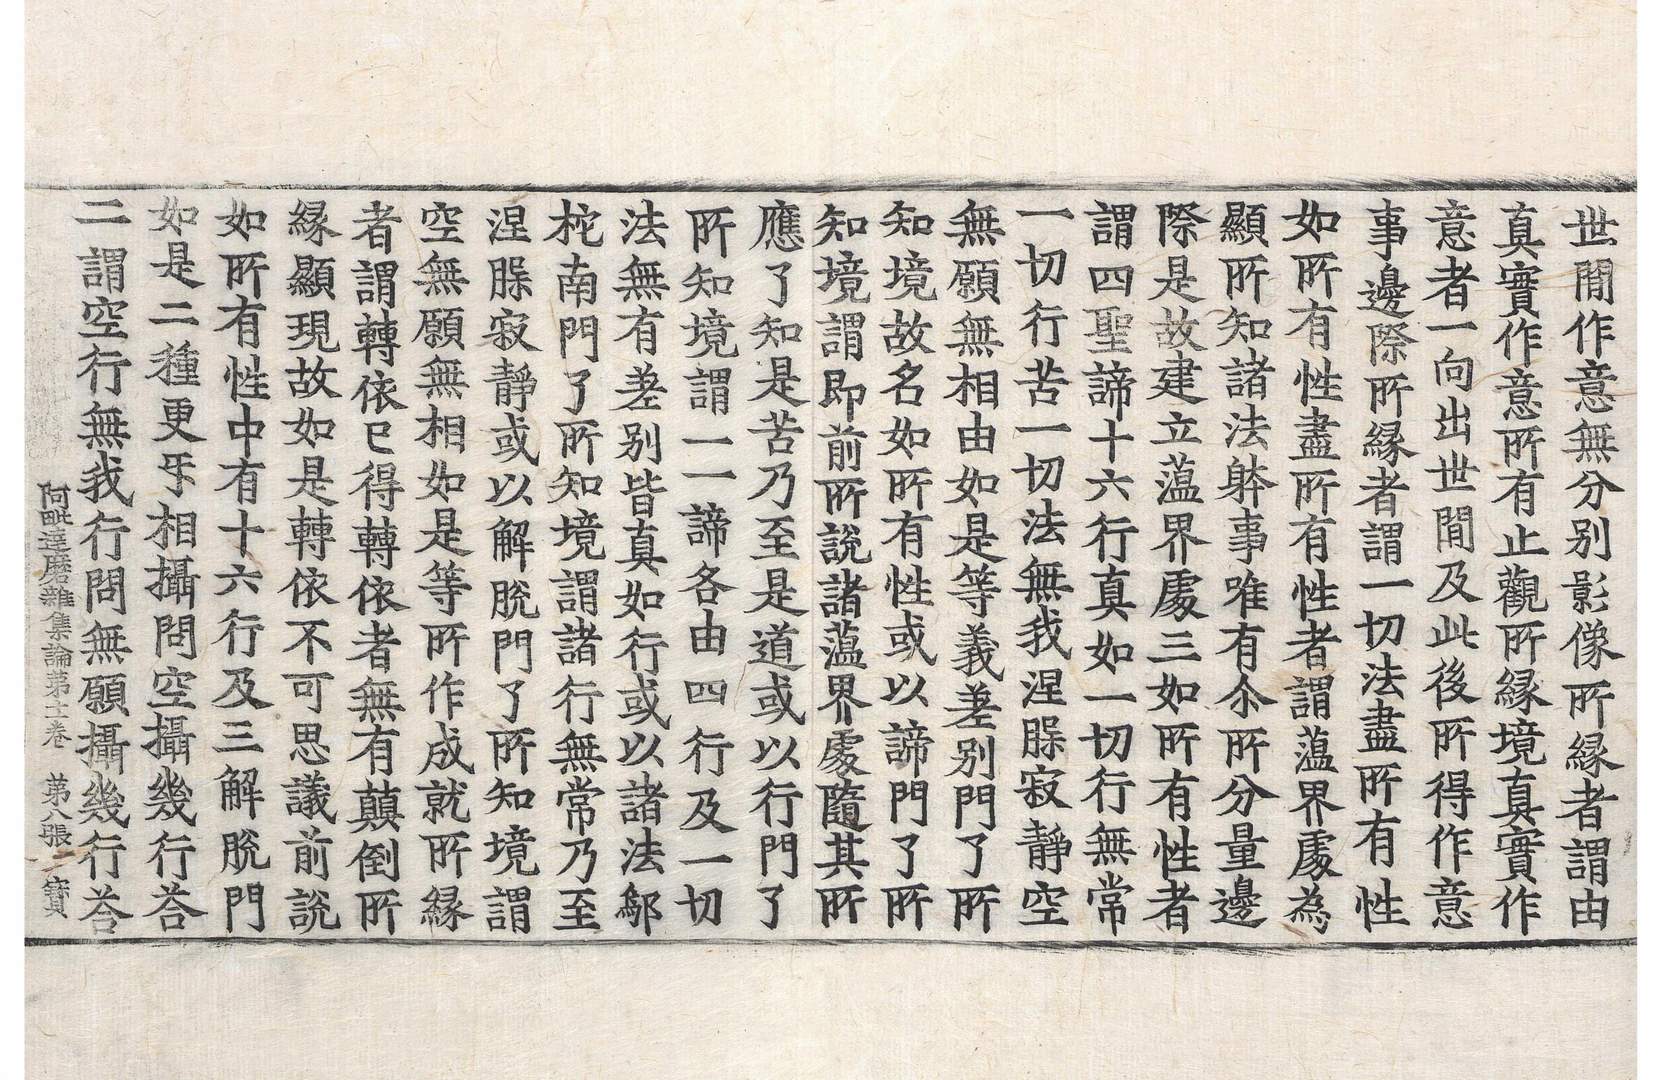 世閒作意無分别影像所縁者謂由
真實作意所有止觀所縁境真實作
意者一向出世閒及此後所得作意
事邊際所縁者謂一切法盡所有性
如所有性盡所有性者謂薀界處為
顯所知諸法躰事唯有尒所分量邊
際是故建立薀界處三如所有性者
謂四聖諦十六行真如一切行無常
一切行苦一切法無我涅槃寂靜空
無願無相由如是等義差别門了所
知境故名如所有性或以諦門了所
知境謂即前所説諸薀界處隨其所
應了知是苦乃至是道或以行門了
所知境謂一一諦各由四行及一切
法無有差别皆真如行或以諸法鄔
柁南門了所知境謂諸行無常乃至
涅槃寂靜或以解脫門了所知境謂
空無願無相如是等所作成就所縁
者謂轉依已得轉依者無有顛倒所
縁顯現故如是轉依不可思議前説
如所有性中有十六行及三解脫門
如是二種更互相攝問空攝幾行荅
二謂空行無我行問無願攝幾行荅
阿毗達磨雜集論第十一卷 第八張 寳